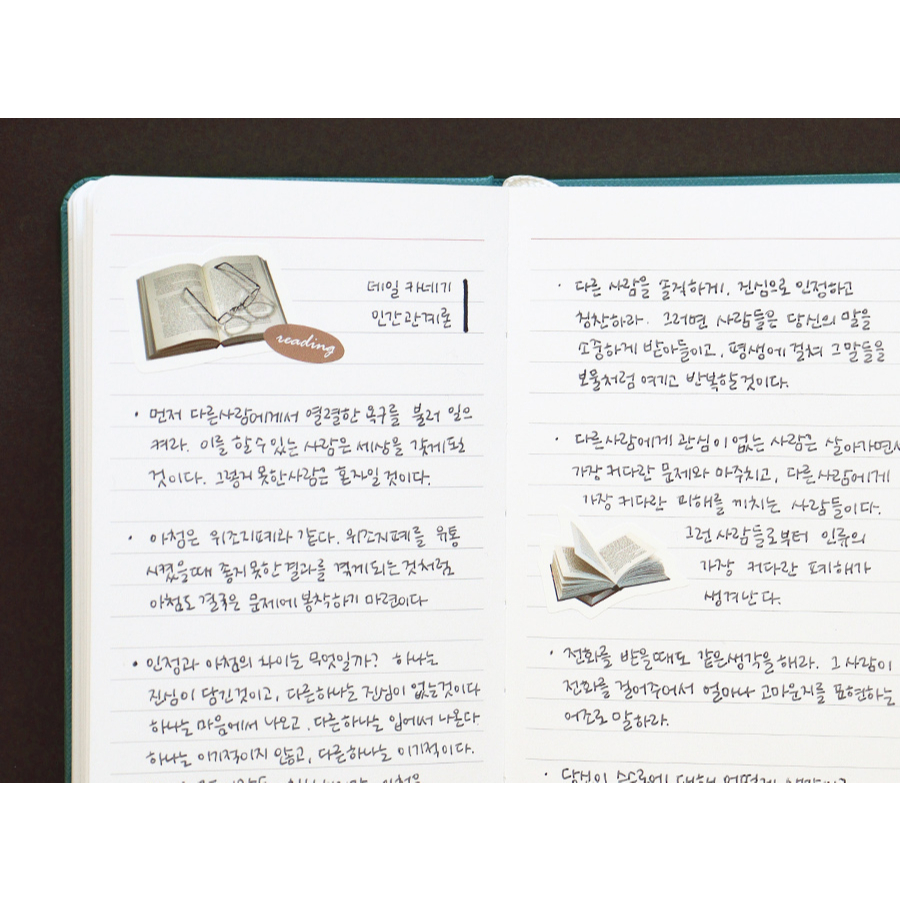 reading
데일 카네기
인간관계론
• 먼저 다른사람에게서 열렬한 욕구를 불러 일으
켜라. 이를 할수 있는 사람은 세상을 갖게될
것이다. 그렇지 못한사람은 혼자일 것이다.
• 아첨은 위조지폐와 같다. 위조지폐를 유통
시켰을때 좋지못한결과를 겪게되는것처럼
아첨도 결국은 문제에 봉착하기 마련이다
• 인정과 아첨의 차이는 무엇일까? 하나는
진심이 담긴것이고, 다른하나는 진심이 없는것이다
하나는 마음에서 나오고. 다른하나는 입에서 나온다
하나는 이기적이지 않고, 다른하나는 이기적이다.
· 다른 사람을 솔직하게, 진심으로 인정하고
칭찬하라. 그러면 사람들은 당신의 말을
소중하게 받아들이고, 평생에 걸쳐 그말들을
보물처럼 여기고 반복할것이다.
· 다른사람에게 관심이 없는 사람은 살아가면서
가장 커다란 문제와 마주치고, 다른사람에게
가장 커다란 피해를 끼치는 사람들이다.
그런 사람들로부터 인류의
가장 커다란 폐해가
생겨난다.
· 전화를 받을때도 같은생각을해라. 그 사람이
전화를 걸어주어서 얼마나 고마운지를 표현하는
어조로 말하라.
· 당신이 스스로에 대해 어떻게 생각하고